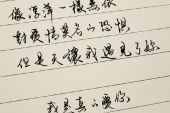 像浮萍一樣無依
對愛情莫名的恐懼
但是天讓我遇見了妳
我是真的愛妳